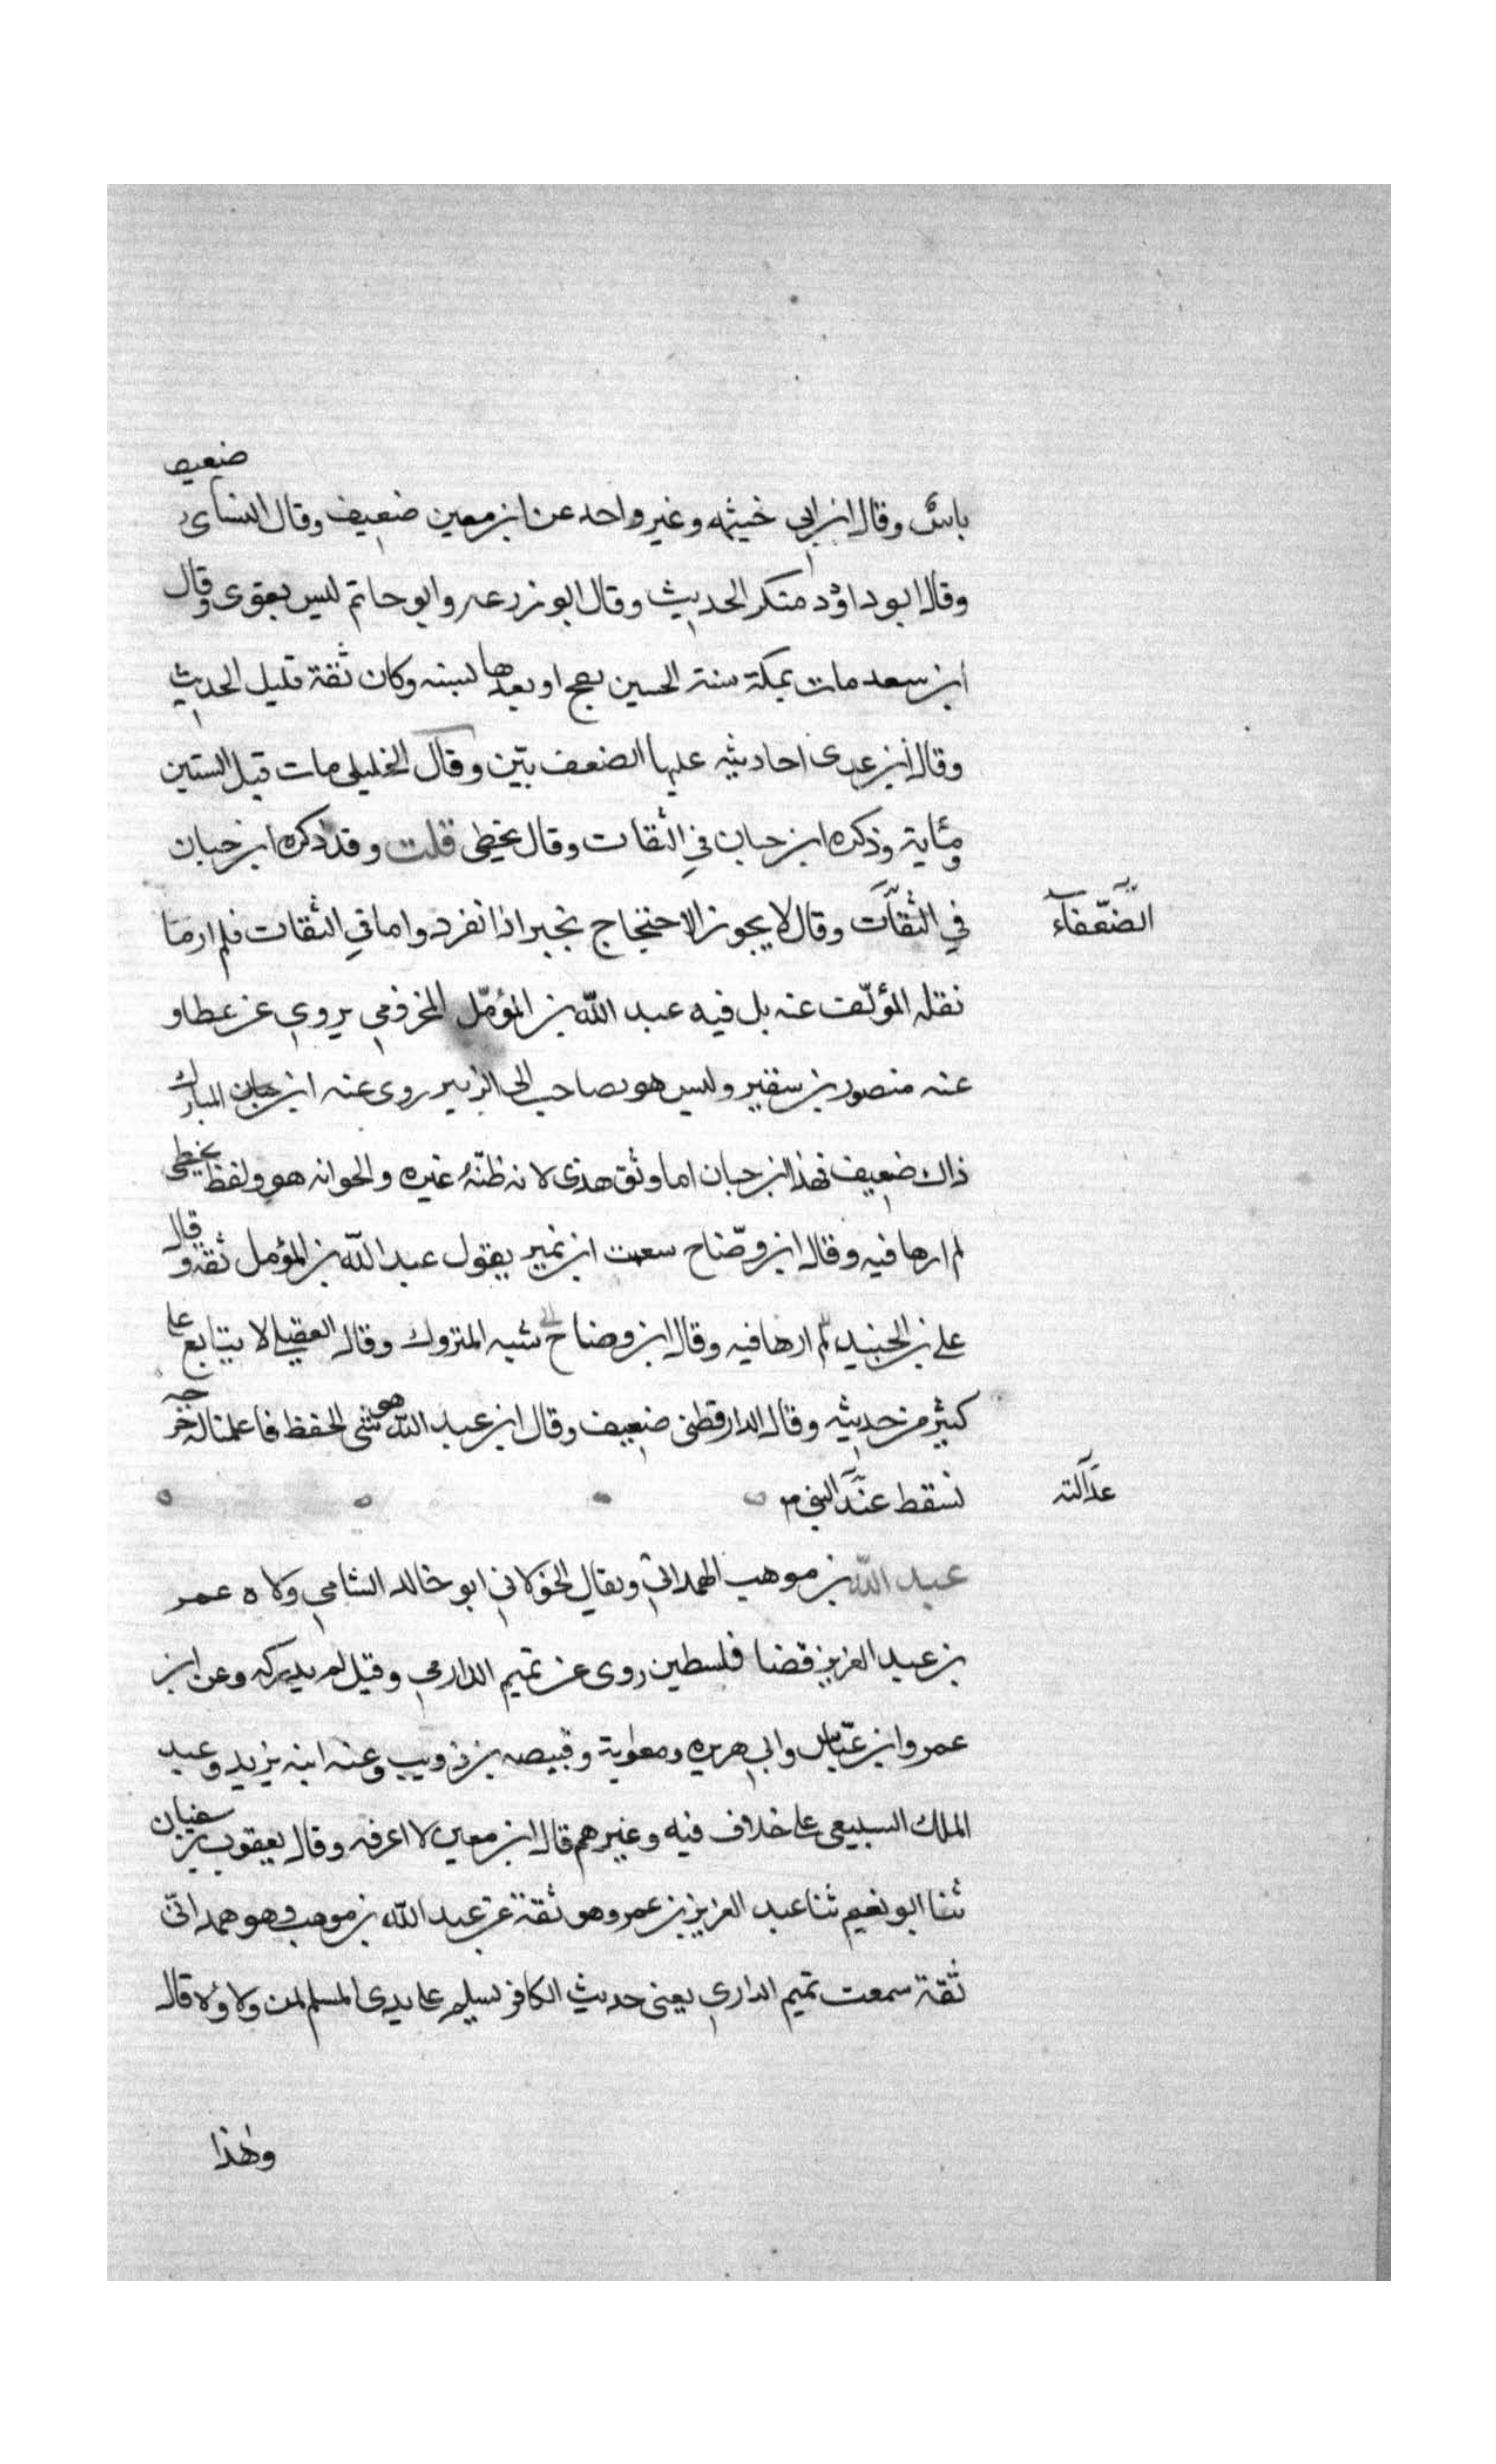 باس وقال ابن ابي خيثمه وغير واحد عن ابن معين ضعيف وقال النسائ ضعيف
وقال ابو داؤد منكر الحديث وقال ابو زرعه وابو حاتم ليس بقوى وقال
ابن سعد مات بمكة سنة الحسين بفج او بعدها بسنه وكان ثقة قليل الحديث
وقال ابن عدى احاديثه عليها الضعف بيّن وقال الخليلى مات قبل الستين
ومئاية وذكره ابن حبان في الثقات وقال يخطى قلت وقد ذكره ابن حبان
في الثقات وقال لا يجوز الاحتجاج بخبر اذا انفرد واما في الثقات فلم ار ما
الضعفاء
نقله المؤلّف عنه بل فيه عبد الله بن المؤمّل المخزومي يروي عن عطا و
عنه منصور بن سقير وليس هو بصاحب ابى الزبير روى عنه ابن المبارك
ذاك ضعيف فهذا ابن حبان اما وثق هذى لانه ظنّه غيره والحوانه هو ولفظ يخطى
لم ارها فيه وقال ابن وضّاح سمعت ابن نمير يقول عبد الله بن المؤمل ثقة وقال
على بن الجنيد لم ارها فيه وقال ابن وضاح شبه المتروك وقال العقيلى لا يتابع على
كثير من حديثه وقال الدارقطنى ضعيف وقال ابن عبد الله هو سئى الحفظ فاعلمنا له خرجه
تسقط عند النبى م
عدالته
عبد الله بن موهب الهمدانى ويقال الخولاني ابو خالد الشامي ولاه عمر
بن عبد العزيز قضا فلسطين روى عن تميم الدارمي وقيل لم يدركه وعن ابن
عمر وابن عبّاس وابى هريره ومعاوية وقبيصه بن ذويب وعنه ابنه يزيد وعبد
الملك السبيعى على خلاف فيه وغيرهم قال ابن معين لا اعرفه وقال يعقوب بن سفيان
ثنا ابو نعيم ثنا عبد العزيز بن عمر وهو ثقة عن عبد الله بن موهب وهو همدانىّ
ثقة سمعت تميم الداري يعنى حديث الكافر يسلم على يدى المسلم لمن ولاؤه قال
وهذا